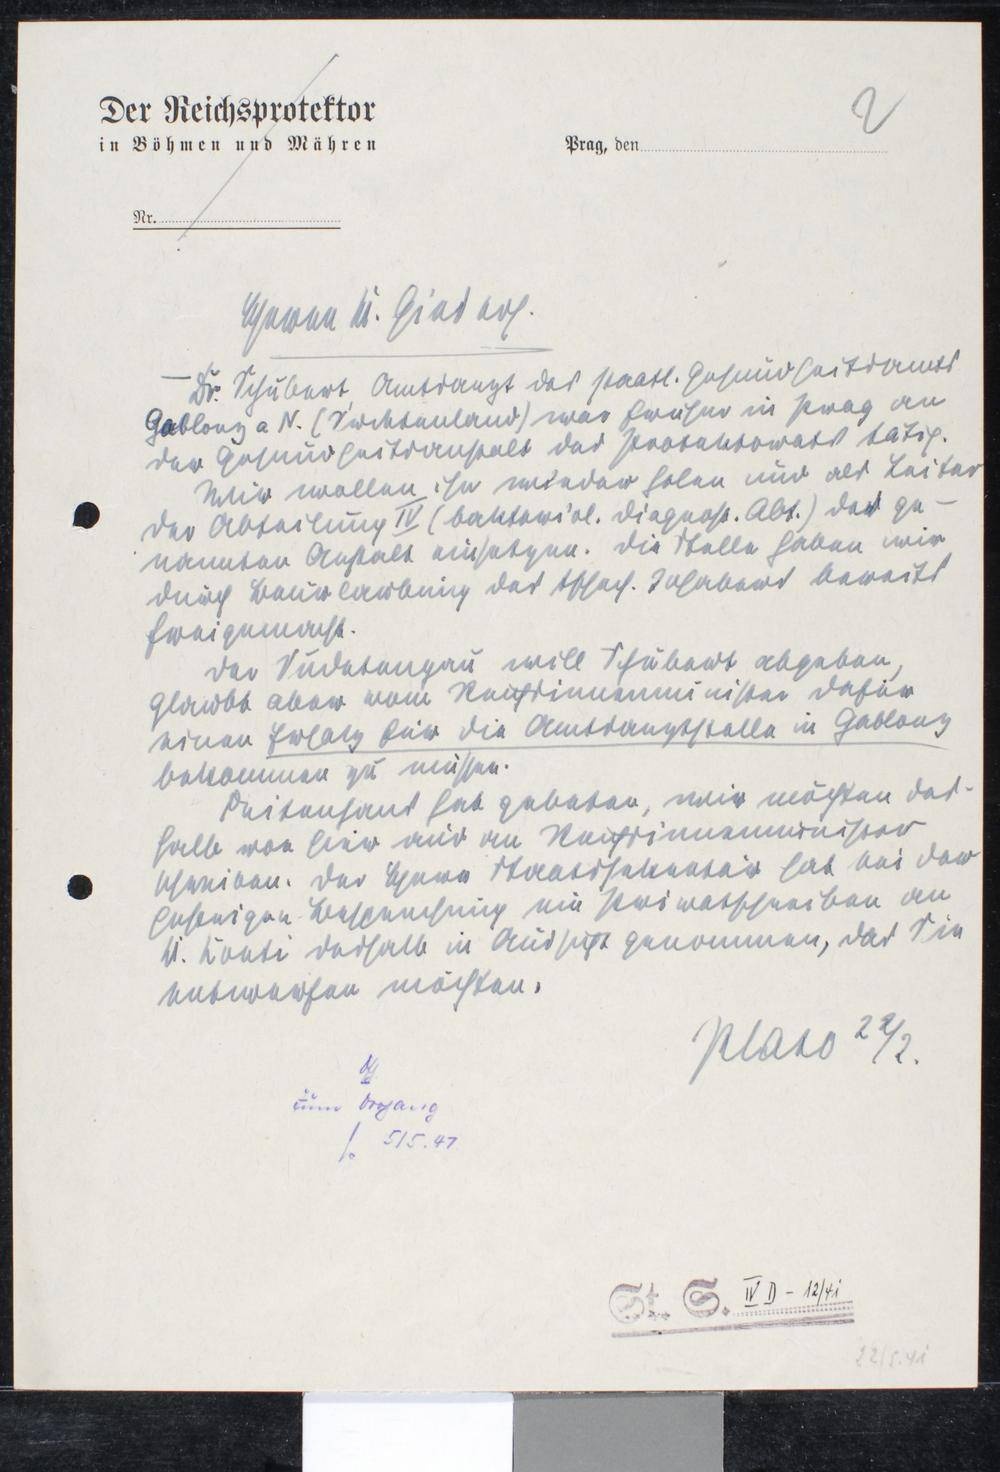 2
Der Reichsprotektor
in Böhmen und Mähren
Prag, den
Nr.
Herrn Dr. Gies
Dr. Schubert, Amtsarzt des staatl. Gesundheitsamts
Gablonz a N. (Sudetenland) war früher in Prag an
der Gesundheitsanstalt des Protektorats tätig.
Wir wollen ihn wieder holen und als Leiter
der Abteilung IV (bakteriol. diagnost. Abt.) der ge-
nannten Anstalt einsetzen. Die Stelle haben wir
durch Beurlaubung des tschech. Inhabers bereits
freigemacht.
Der Sudetengau will Schubert abgeben,
glaubt aber vom Reichsinnenminister dafür
einen Ersatz für die Amtsarztstelle in Gablonz
bekommen zu müssen.
hat gebeten, wir möchten des-
halb von hier aus an Reichsinnenminister
schreiben. Der Herr Staatssekretär hat bei der
gestrigen Besprechung ein Privatschreiben an
Dr. Conti deshalb in Aussicht genommen, das Sie
entwerfen möchten.
Plato 22/2.
zum Vorgang
5/5.41
St. S. IV D - 12/41
22/5.41